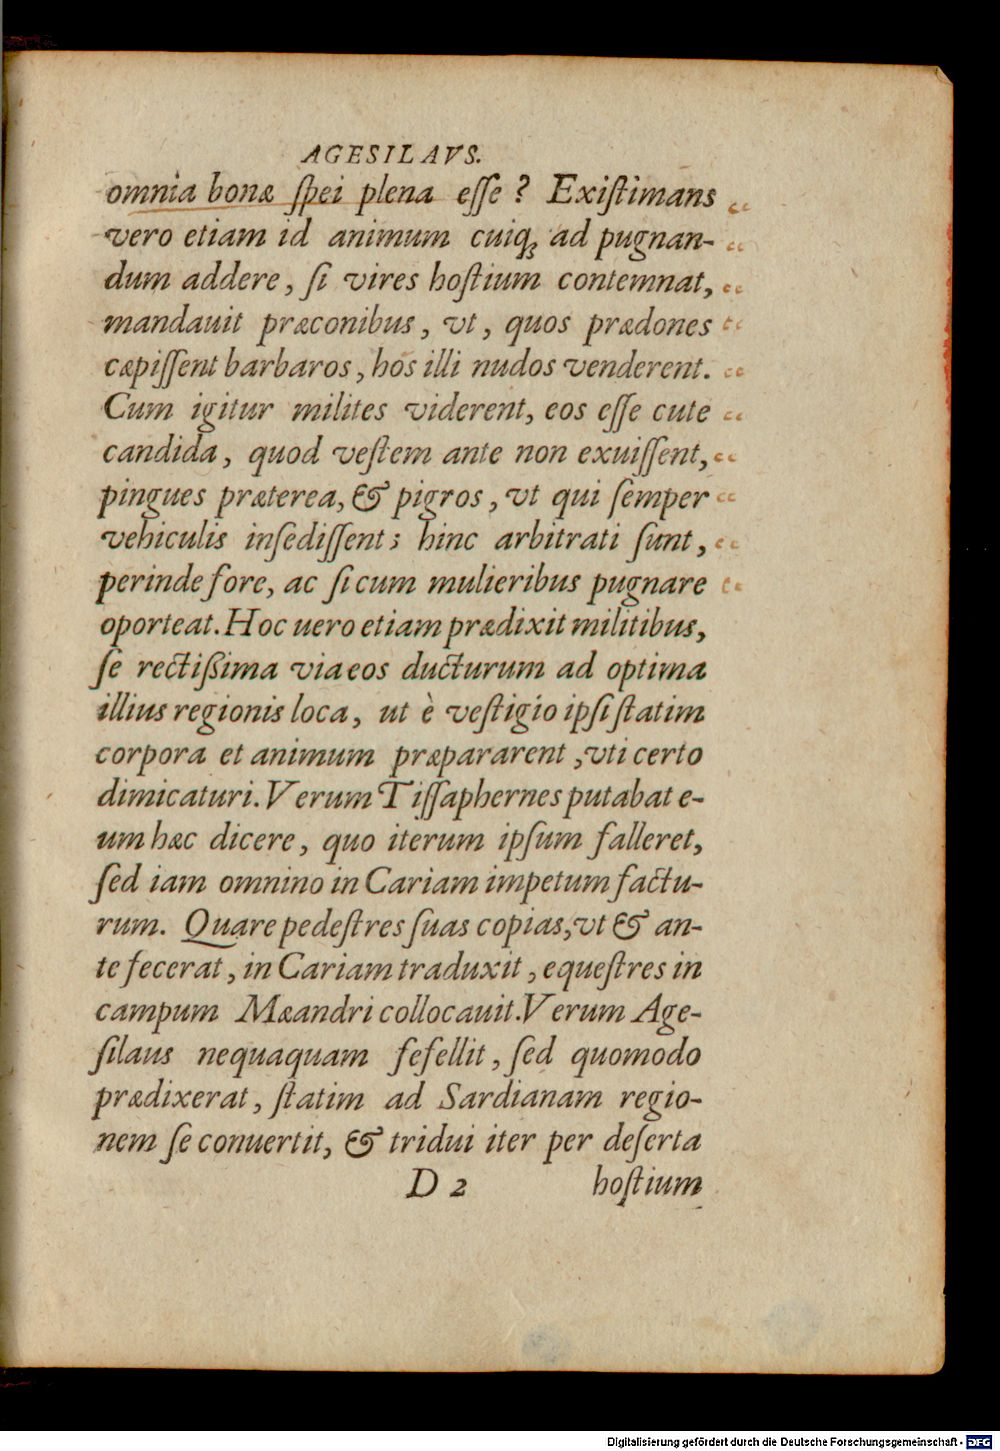 AGESILAVS.
omnia bonæ ſpei plena eſſe? Exiſtimans
vero etiam id animum cuiq; ad pugnan-
dum addere, ſi vires hoſtium contemnat,
mandauit præconibus, vt, quos prædones
cæpiſſent barbaros, hos illi nudos venderent.
Cum igitur milites viderent, eos eſſe cute
candida, quod veſtem ante non exuiſſent,
pingues præterea, & pigros, vt qui ſemper
vehiculis inſediſſent; hinc arbitrati ſunt,
perinde fore, ac ſi cum mulieribus pugnare
oporteat. Hoc uero etiam prædixit militibus,
ſe rectißima via eos ducturum ad optima
illius regionis loca, ut è veſtigio ipſi ſtatim
corpora et animum præpararent, vti certo
dimicaturi. Verum Tiſſaphernes putabat e-
um hæc dicere, quo iterum ipſum falleret,
ſed iam omnino in Cariam impetum factu-
rum. Quare pedeſtres ſuas copias, vt & an-
te fecerat, in Cariam traduxit, equeſtres in
campum Mæandri collocauit. Verum Age-
ſilaus nequaquam fefellit, ſed quomodo
prædixerat, ſtatim ad Sardianam regio-
nem ſe conuertit, & tridui iter per deſerta
D 2 hoſtium
Digitalisierung gefördert durch die Deutsche Forschungsgemeinschaft - DFG